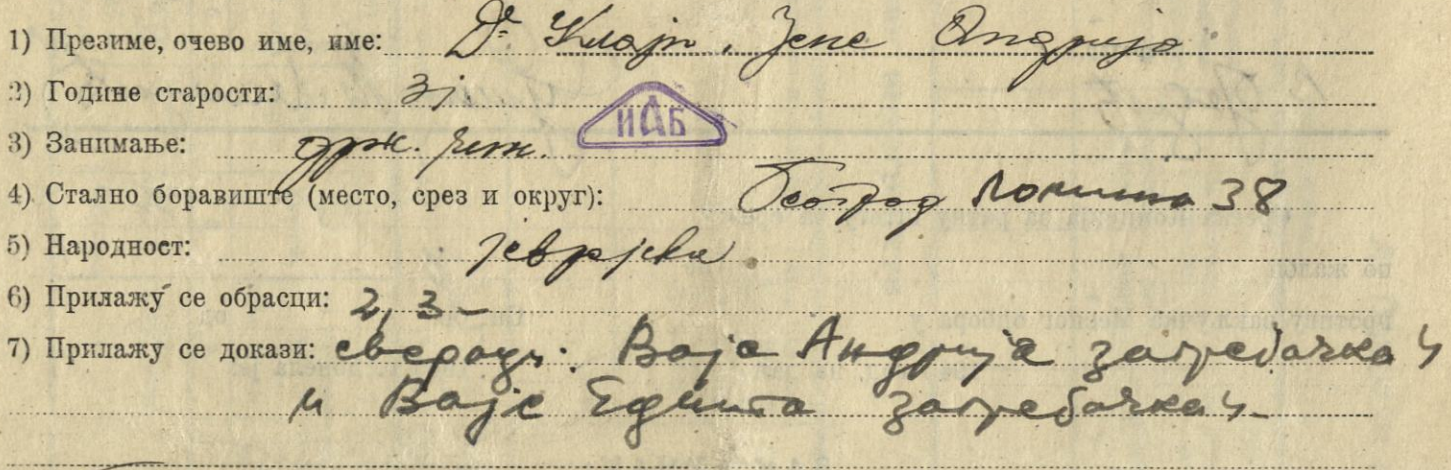 1) Презиме, очево име, име: Dr Клајн, Јене Андрија
2) Године старости:
ИАБ
3) Занимање: држ. чин.
4) Стално боравиште (место, срез и округ): Београд 38
5) Народност: јевреј
6) Прилажу се обрасци: 2, 3 –
7) Прилажу се докази: Андрија загребачка 4
и Едита загребачка 4